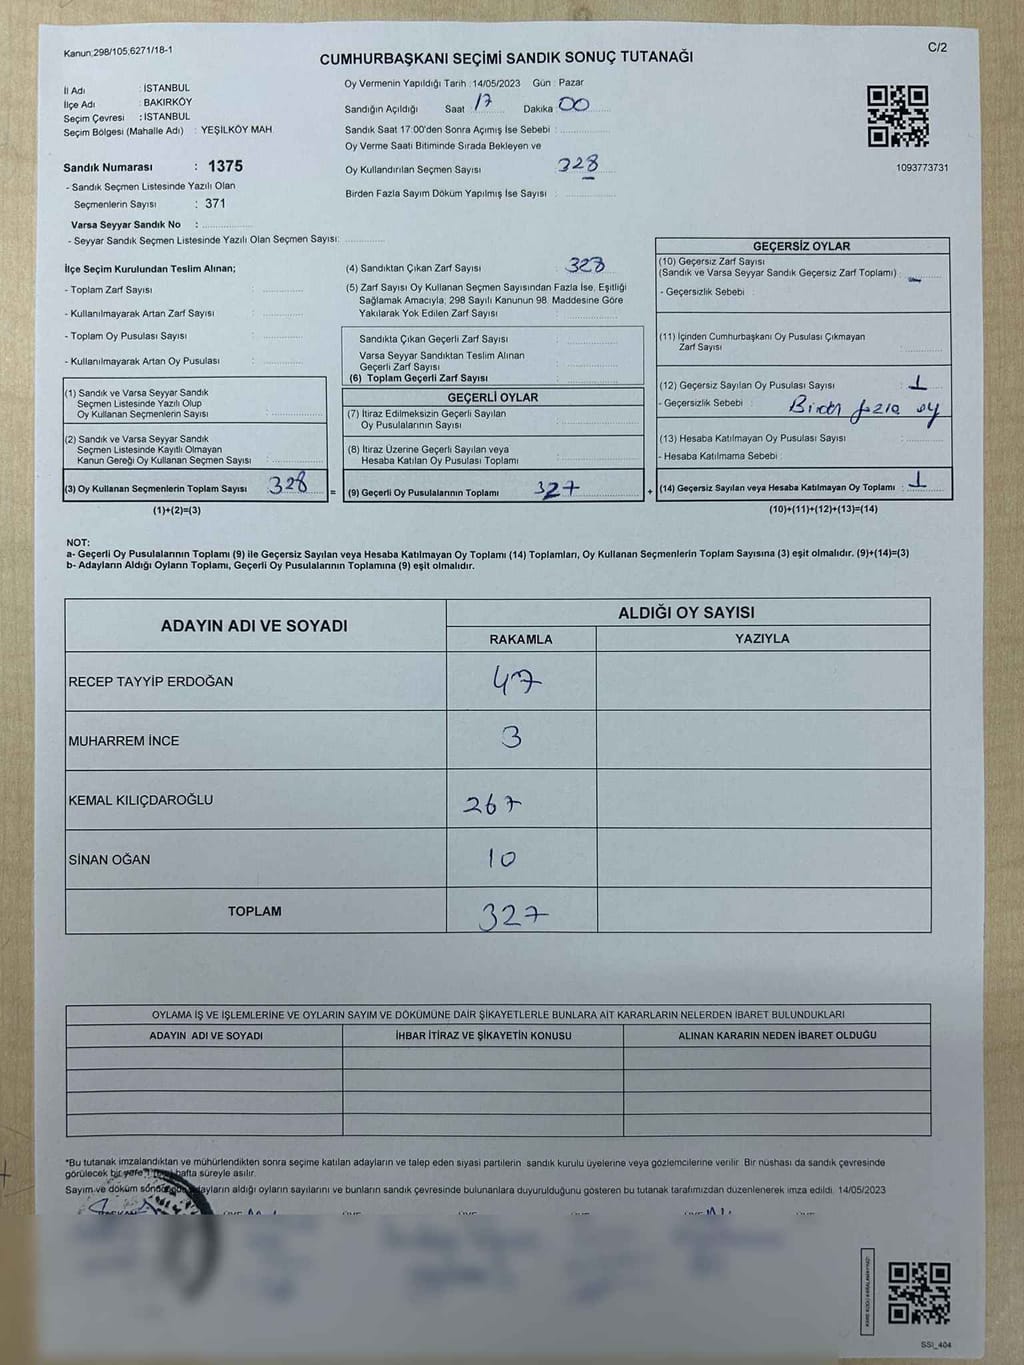 Kanun:298/105,6271/18-1
C/2
CUMHURBAŞKANI SEÇİMİ SANDIK SONUÇ TUTANAĞI
İl Adı : İSTANBUL
İlçe Adı : BAKIRKÖY
Seçim Çevresi : İSTANBUL
Seçim Bölgesi (Mahalle Adı) : YEŞİLKÖY MAH.
Sandık Numarası : 1375
- Sandık Seçmen Listesinde Yazılı Olan
Seçmenlerin Sayısı : 371
Varsa Seyyar Sandık No :
- Seyyar Sandık Seçmen Listesinde Yazılı Olan Seçmen Sayısı:
Oy Vermenin Yapıldığı Tarih : 14/05/2023 Gün : Pazar
Sandığın Açıldığı Saat 17 Dakika 00
Sandık Saat 17:00'den Sonra Açımış İse Sebebi :
Oy Verme Saati Bitiminde Sırada Bekleyen ve
Oy Kullandırılan Seçmen Sayısı : 328
Birden Fazla Sayım Döküm Yapılmış İse Sayısı :
1093773731
İlçe Seçim Kurulundan Teslim Alınan;
- Toplam Zarf Sayısı :
- Kullanılmayarak Artan Zarf Sayısı :
- Toplam Oy Pusulası Sayısı :
- Kullanılmayarak Artan Oy Pusulası :
(1) Sandık ve Varsa Seyyar Sandık
Seçmen Listesinde Yazılı Olup
Oy Kullanan Seçmenlerin Sayısı :
(2) Sandık ve Varsa Seyyar Sandık
Seçmen Listesinde Kayıtlı Olmayan
Kanun Gereği Oy Kullanan Seçmen Sayısı :
(3) Oy Kullanan Seçmenlerin Toplam Sayısı 328
(1)+(2)=(3)
=
(4) Sandıktan Çıkan Zarf Sayısı : 328
(5) Zarf Sayısı Oy Kullanan Seçmen Sayısından Fazla İse, Eşitliği
Sağlamak Amacıyla, 298 Sayılı Kanunun 98. Maddesine Göre
Yakılarak Yok Edilen Zarf Sayısı :
Sandıkta Çıkan Geçerli Zarf Sayısı :
Varsa Seyyar Sandıktan Teslim Alınan
Geçerli Zarf Sayısı :
(6) Toplam Geçerli Zarf Sayısı :
GEÇERLİ OYLAR
(7) İtiraz Edilmeksizin Geçerli Sayılan
Oy Pusulalarının Sayısı :
(8) İtiraz Üzerine Geçerli Sayılan veya
Hesaba Katılan Oy Pusulası Toplamı :
(9) Geçerli Oy Pusulalarının Toplamı 327
+
GEÇERSİZ OYLAR
(10) Geçersiz Zarf Sayısı
(Sandık ve Varsa Seyyar Sandık Geçersiz Zarf Toplamı) : -
- Geçersizlik Sebebi :
(11) İçinden Cumhurbaşkanı Oy Pusulası Çıkmayan
Zarf Sayısı :
(12) Geçersiz Sayılan Oy Pusulası Sayısı : 1
- Geçersizlik Sebebi : Birden fazla oy
(13) Hesaba Katılmayan Oy Pusulası Sayısı :
- Hesaba Katılmama Sebebi :
(14) Geçersiz Sayılan veya Hesaba Katılmayan Oy Toplamı : 1
(10)+(11)+(12)+(13)=(14)
NOT:
a- Geçerli Oy Pusulalarının Toplamı (9) ile Geçersiz Sayılan veya Hesaba Katılmayan Oy Toplamı (14) Toplamları, Oy Kullanan Seçmenlerin Toplam Sayısına (3) eşit olmalıdır. (9)+(14)=(3)
b- Adayların Aldığı Oyların Toplamı, Geçerli Oy Pusulalarının Toplamına (9) eşit olmalıdır.
ADAYIN ADI VE SOYADI
ALDIĞI OY SAYISI
RAKAMLA YAZIYLA
RECEP TAYYİP ERDOĞAN 47
MUHARREM İNCE 3
KEMAL KILIÇDAROĞLU 267
SİNAN OĞAN 10
TOPLAM 327
OYLAMA İŞ VE İŞLEMLERİNE VE OYLARIN SAYIM VE DÖKÜMÜNE DAİR ŞİKAYETLERLE BUNLARA AİT KARARLARIN NELERDEN İBARET BULUNDUKLARI
ADAYIN ADI VE SOYADI İHBAR İTİRAZ VE ŞİKAYETİN KONUSU ALINAN KARARIN NEDEN İBARET OLDUĞU
*Bu tutanak imzalandıktan ve mühürlendikten sonra seçime katılan adayların ve talep eden siyasi partilerin sandık kurulu üyelerine veya gözlemcilerine verilir. Bir nüshası da sandık çevresinde
görülecek bir yere hafta süreyle asılır.
Sayım ve döküm adayların aldığı oyların sayılarını ve bunların sandık çevresinde bulunanlara duyurulduğunu gösteren bu tutanak tarafımızdan düzenlenerek imza edildi. 14/05/2023
SSI_404